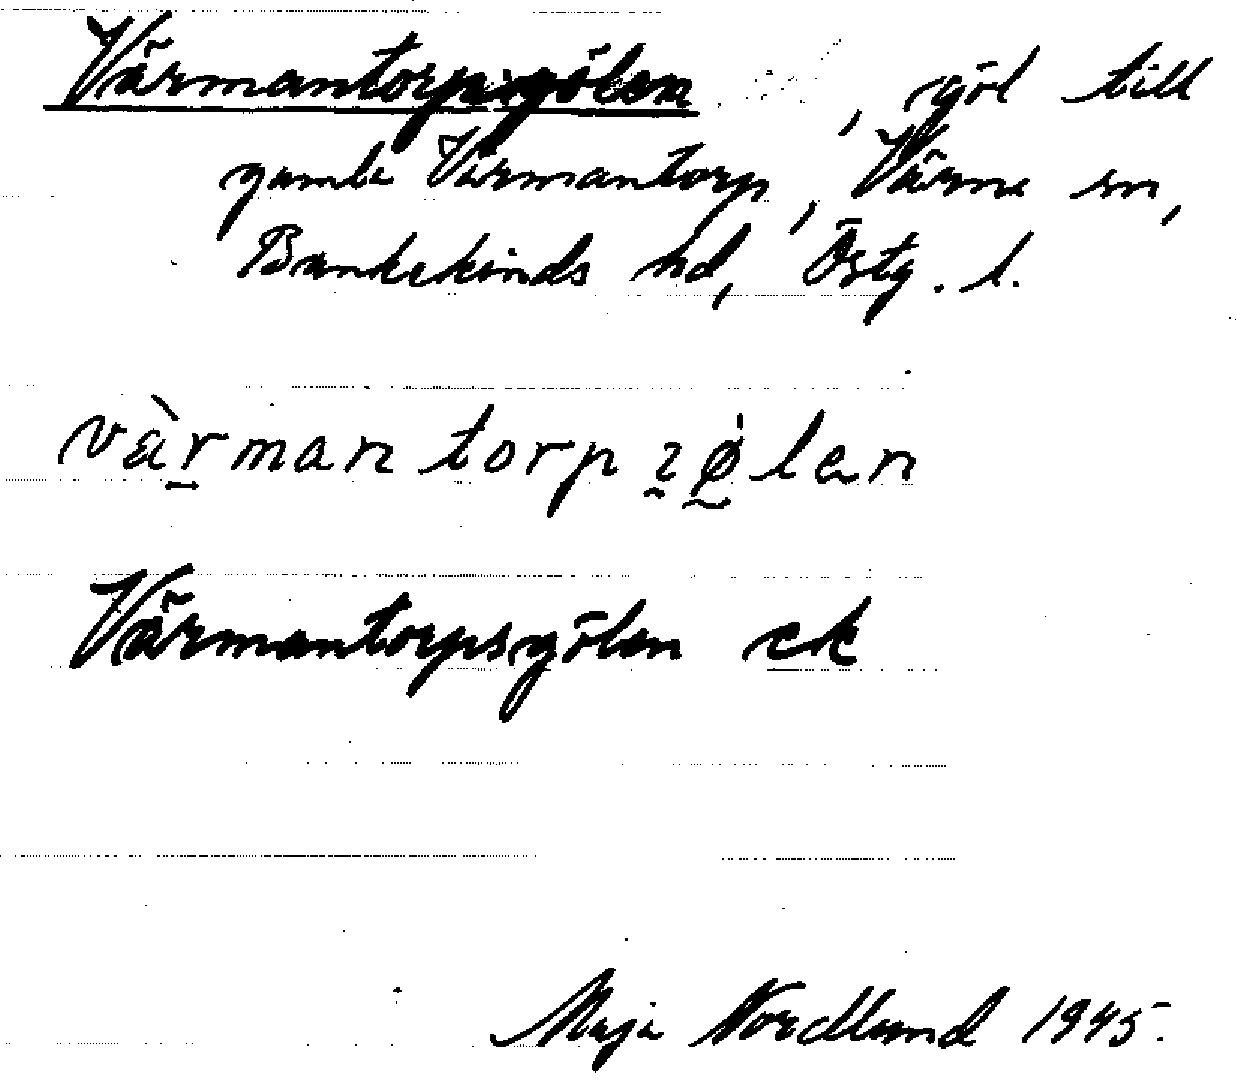 Värmantorpsgölen, göl till
gamla Värmantorp, Värna sn,
Bankekinds hd, Östg. l.
vàrman torp
Värmantorpsgölen ek
Maja Nordlund 1945.